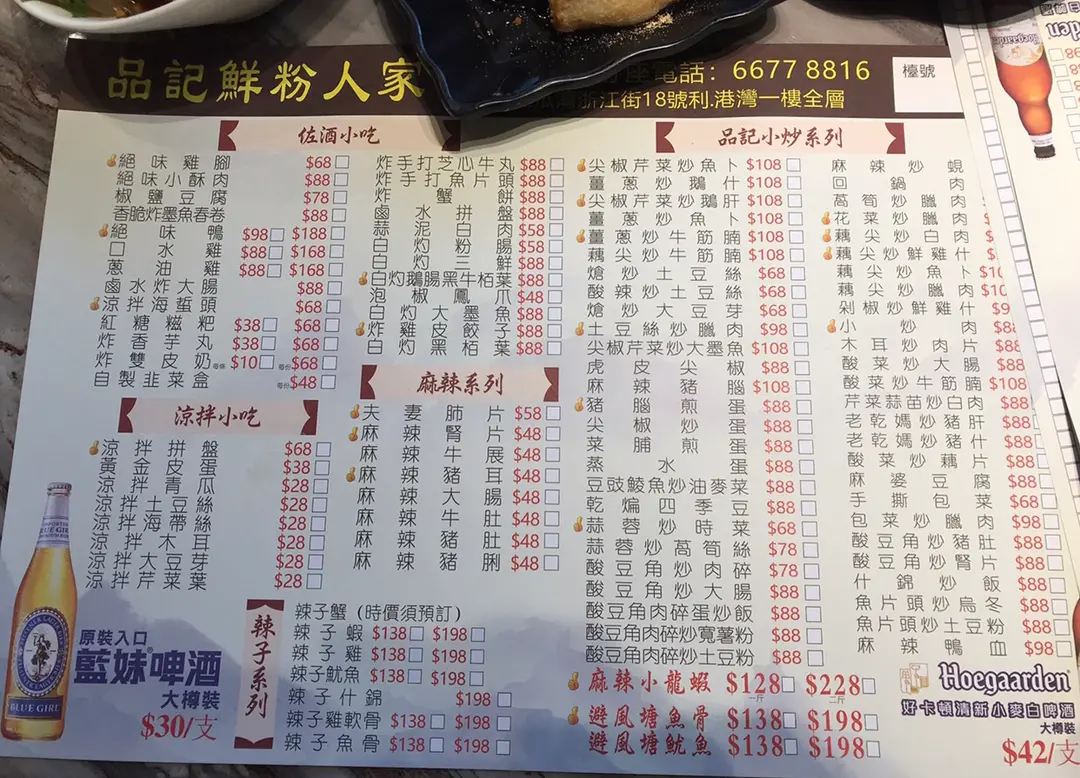 品記鮮粉人家
座電話：6677 8816
浙江街18號利.港灣一樓全層
檯號
佐酒小吃
絕味雞腳 $68
絕味小酥肉 $88
椒鹽豆腐 $78
香脆炸墨魚春卷 $88
絕味鴨 $98 $188
口水雞 $88 $168
蔥油雞 $88 $168
鹵水炸大腸 $88
涼拌海蜇頭 $68
紅糖糍粑 $38 $68
炸香芋丸 $38 $68
炸雙皮奶 每條 $10 每份 $68
自製韭菜盒 每份 $48
炸手打芝心牛丸 $88
炸手打魚片頭 $88
炸蟹餅 $88
鹵水拼盤 $88
蒜泥白肉 $58
白灼粉腸 $58
白灼三鮮 $88
白灼鵝腸黑牛栢葉 $88
泡椒鳳爪 $48
白灼大墨魚 $88
炸雞皮餃子 $88
白灼黑栢葉 $88
涼拌小吃
涼拌拼盤 $68
黃金皮蛋 $38
涼拌青瓜 $28
涼拌土豆絲 $28
涼拌海帶絲 $28
涼拌木耳 $28
涼拌大豆芽 $28
涼拌芹菜葉 $28
麻辣系列
夫妻肺片 $58
麻辣腎片 $48
麻辣牛展 $48
麻辣豬耳 $48
麻辣大腸 $48
麻辣牛肚 $48
麻辣豬肚 $48
麻辣豬脷 $48
辣子系列
辣子蟹（時價須預訂）
辣子蝦 $138 $198
辣子雞 $138 $198
辣子魷魚 $138 $198
辣子什錦 $198
辣子雞軟骨 $138 $198
辣子魚骨 $138 $198
品記小炒系列
尖椒芹菜炒魚卜 $108
薑蔥炒鵝什 $108
尖椒芹菜炒鵝肝 $108
薑蔥炒魚卜 $108
薑蔥炒牛筋腩 $108
藕尖炒牛筋腩 $108
熗炒土豆絲 $68
酸辣炒土豆絲 $68
熗炒大豆芽 $68
土豆絲炒臘肉 $98
尖椒芹菜炒大墨魚 $108
虎皮尖椒 $88
麻辣豬腦 $108
豬腦煎蛋 $88
尖椒炒蛋 $88
菜脯煎蛋 $88
蒸水蛋 $88
豆豉鯪魚炒油麥菜 $88
乾煸四季豆 $88
蒜蓉炒時菜 $68
蒜蓉炒萵筍絲 $78
酸豆角炒肉碎 $78
酸豆角炒大腸 $88
酸豆角肉碎蛋炒飯 $88
酸豆角肉碎炒寬薯粉 $88
酸豆角肉碎炒土豆粉 $88
麻辣小龍蝦 $128 一斤 $228 二斤
避風塘魚骨 $138 $198
避風塘魷魚 $138 $198
麻辣炒蜆
回鍋肉
萵筍炒臘肉
花菜炒臘肉
藕尖炒白肉
藕尖炒鮮雞什
藕尖炒魚卜
藕尖炒臘肉
剁椒炒鮮雞什
小炒肉
木耳炒肉片 $88
酸菜炒大腸 $88
酸菜炒牛筋腩 $108
芹菜蒜苗炒白肉 $88
老乾媽炒豬肝 $88
老乾媽炒豬什 $88
酸菜炒藕片 $88
麻婆豆腐 $88
手撕包菜 $68
包菜炒臘肉 $98
酸豆角炒豬肚 $88
酸豆角炒腎片 $88
什錦炒飯 $88
魚片頭炒烏冬 $88
魚片頭炒土豆粉 $88
麻辣鴨血 $98
原裝入口
藍妹啤酒
大樽裝
$30/支
BLUE GIRL
Hoegaarden
好卡頓清新小麥白啤酒
大樽裝
$42/支